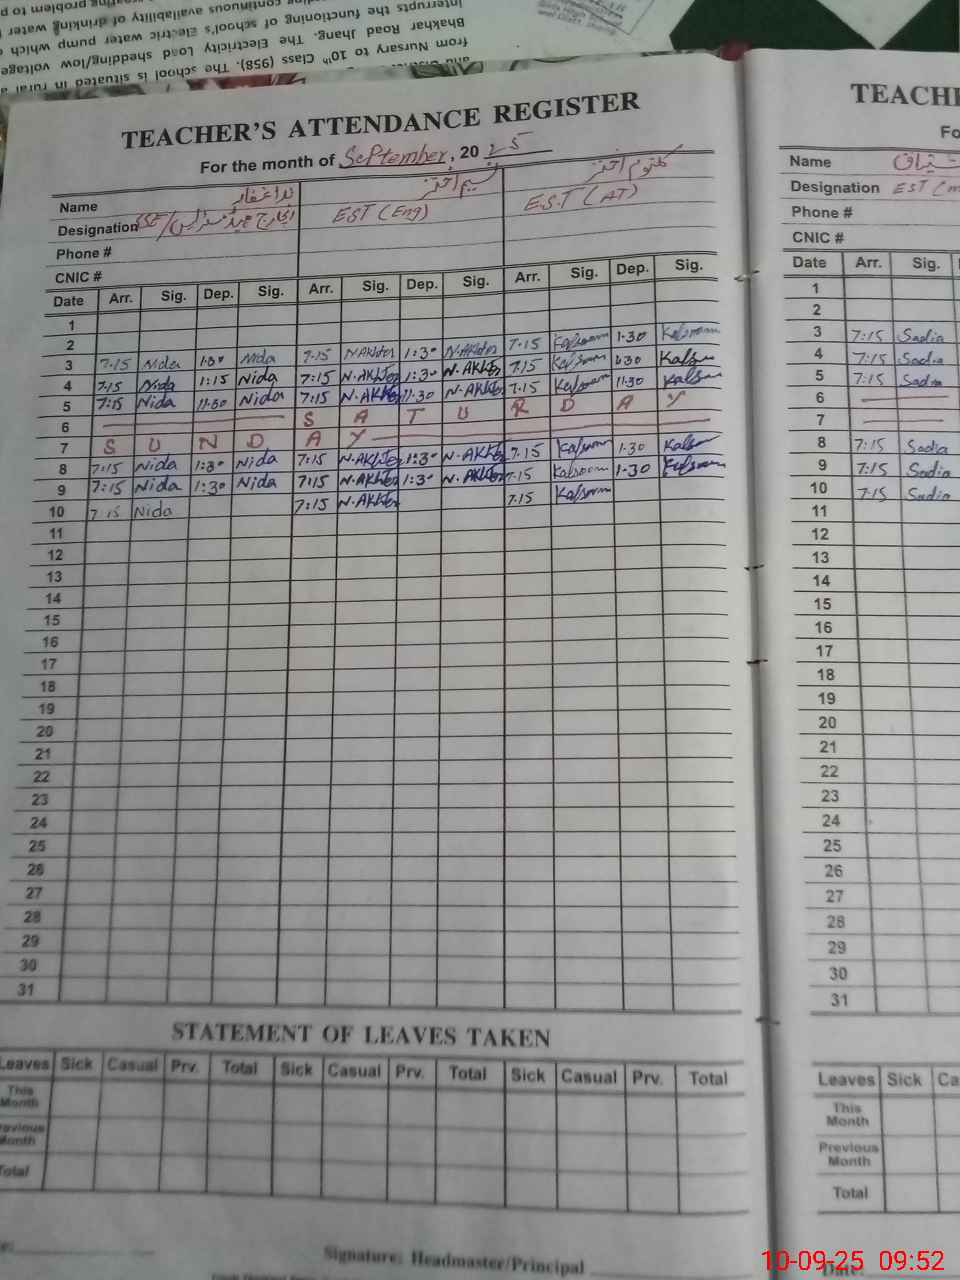 from Nursery to 10th Class (958). The school is situated in rural a
Bhakhar Road Jhang. The Electricity Load shedding/low voltage
interrupts the functioning of school's Electric water pump which
continuous availability of drinking water
problem to p
TEACHER'S ATTENDANCE REGISTER
For the month of September, 20 25
Name ندا غفار نسیم اختر کلثوم اختر
Designation SSE/انچارج ہیڈ مسٹریس EST (Eng) E.S.T (AT)
Phone #
CNIC #
Date Arr. Sig. Dep. Sig. Arr. Sig. Dep. Sig. Arr. Sig. Dep. Sig.
1
2
3 7:15 Nida 1:30 Nida 7:15 N.Akhter 1:30 N.Akhter 7:15 Kalsoom 1:30 Kalsoom
4 7:15 Nida 1:15 Nida 7:15 N.Akhter 1:30 N.Akhter 7:15 Kalsoom 1:30 Kalsoom
5 7:15 Nida 11:30 Nida 7:15 N.Akhter 11:30 N.Akhter 7:15 Kalsoom 11:30 Kalsoom
6 S A T U R D A Y
7 S U N D A Y
8 7:15 Nida 1:30 Nida 7:15 N.Akhter 1:30 N.Akhter 7:15 Kalsoom 1:30 Kalsoom
9 7:15 Nida 1:30 Nida 7:15 N.Akhter 1:30 N.Akhter 7:15 Kalsoom 1:30 Kalsoom
10 7:15 Nida 7:15 N.Akhter 7:15 Kalsoom
11
12
13
14
15
16
17
18
19
20
21
22
23
24
25
26
27
28
29
30
31
STATEMENT OF LEAVES TAKEN
Leaves Sick Casual Prv. Total Sick Casual Prv. Total Sick Casual Prv. Total
This Month
Previous Month
Total
Signature: Headmaster/Principal
TEACHE
Fo
Name
Designation EST (
Phone #
CNIC #
Date Arr. Sig.
1
2
3 7:15 Sadia
4 7:15 Sadia
5 7:15 Sadia
6
7
8 7:15 Sadia
9 7:15 Sadia
10 7:15 Sadia
11
12
13
14
15
16
17
18
19
20
21
22
23
24
25
26
27
28
29
30
31
Leaves Sick Ca
This Month
Previous Month
Total
Date:
10-09-25 09:52